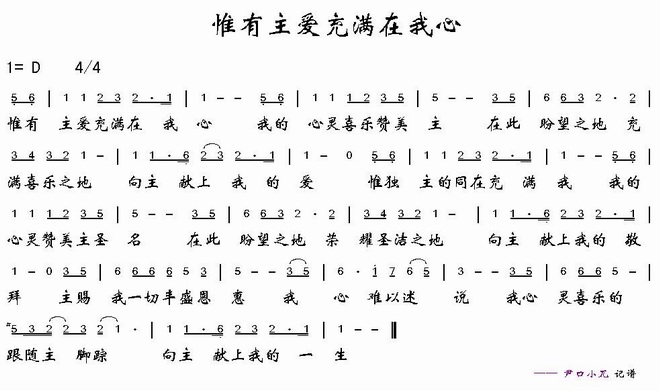 惟有主爱充满在我心
1= D 4/4
5 6 | 1 1 2 3 2 · 1 | 1 - - 5 6 | 1 1 1 2 3 3 5 | 5 - - 3 5 | 6 6 3 2 · 2 |
惟有 主爱充满在 我 心 我的 心灵喜乐赞美 主 在此 盼望之地 充
3 4 3 2 1 - | 1 1 · 6 2 3 2 | 1 - 0 5 6 | 1 1 2 3 2 · 1 | 1 - - 5 6 |
满喜乐之地 向主 献上 我 的 爱 惟独 主的同在充 满 我 我的
1 1 1 2 3 5 | 5 - - 3 5 | 6 6 3 2 · 2 | 3 4 3 2 1 - | 1 1 · 6 2 3 2 |
心灵赞美主圣 名 在此 盼望之地 荣 耀圣洁之地 向主 献上我的 敬
1 - 0 3 5 | 6 6 6 6 5 3 | 5 - - 3 5 | 6 · 1 7 6 6 5 | 5 - 3 2 3 5 |
拜 主赐 我一切丰盛恩 惠 我 心 难以述 说 我心 灵喜乐的
#5 3 2 2 3 2 1 · | 1 1 · 6 2 3 2 | 1 - - ‖
跟随主 脚踪 向主 献上我的 一 生
—— 尹口小兀 记谱